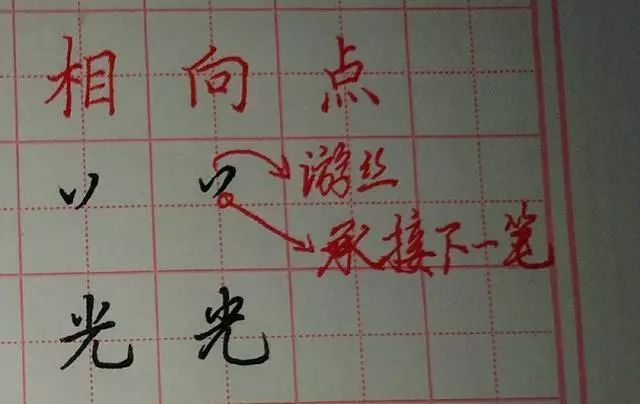 相向点
游丝
承接下一笔
光光